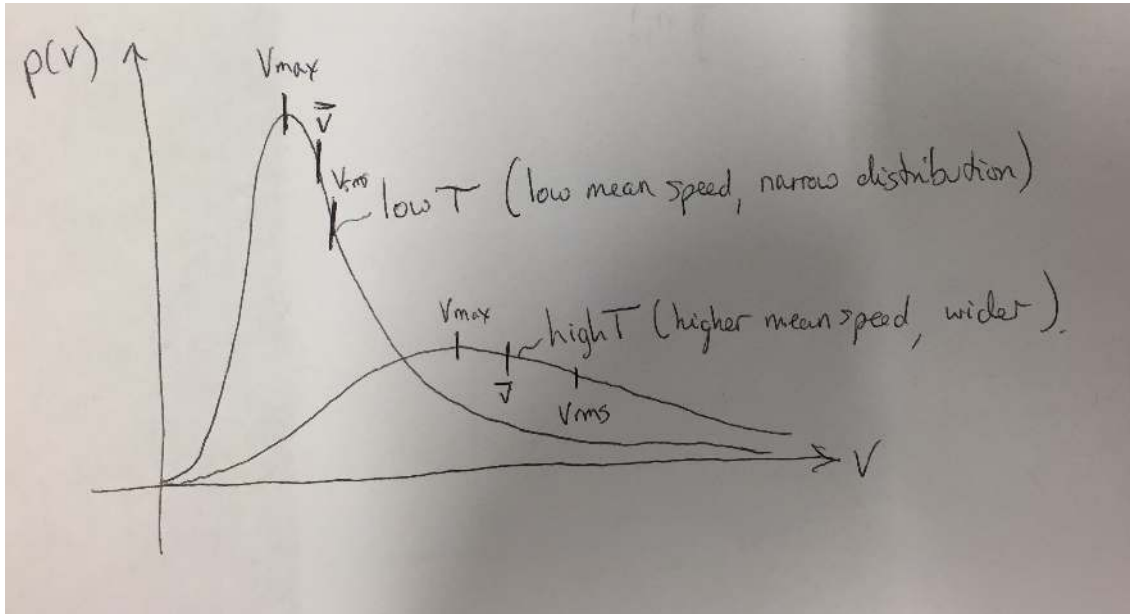 p(v)
Vmax
v̄
Vrms
low T (low mean speed, narrow distribution)
Vmax
high T (higher mean speed, wider).
v̄
Vrms
V